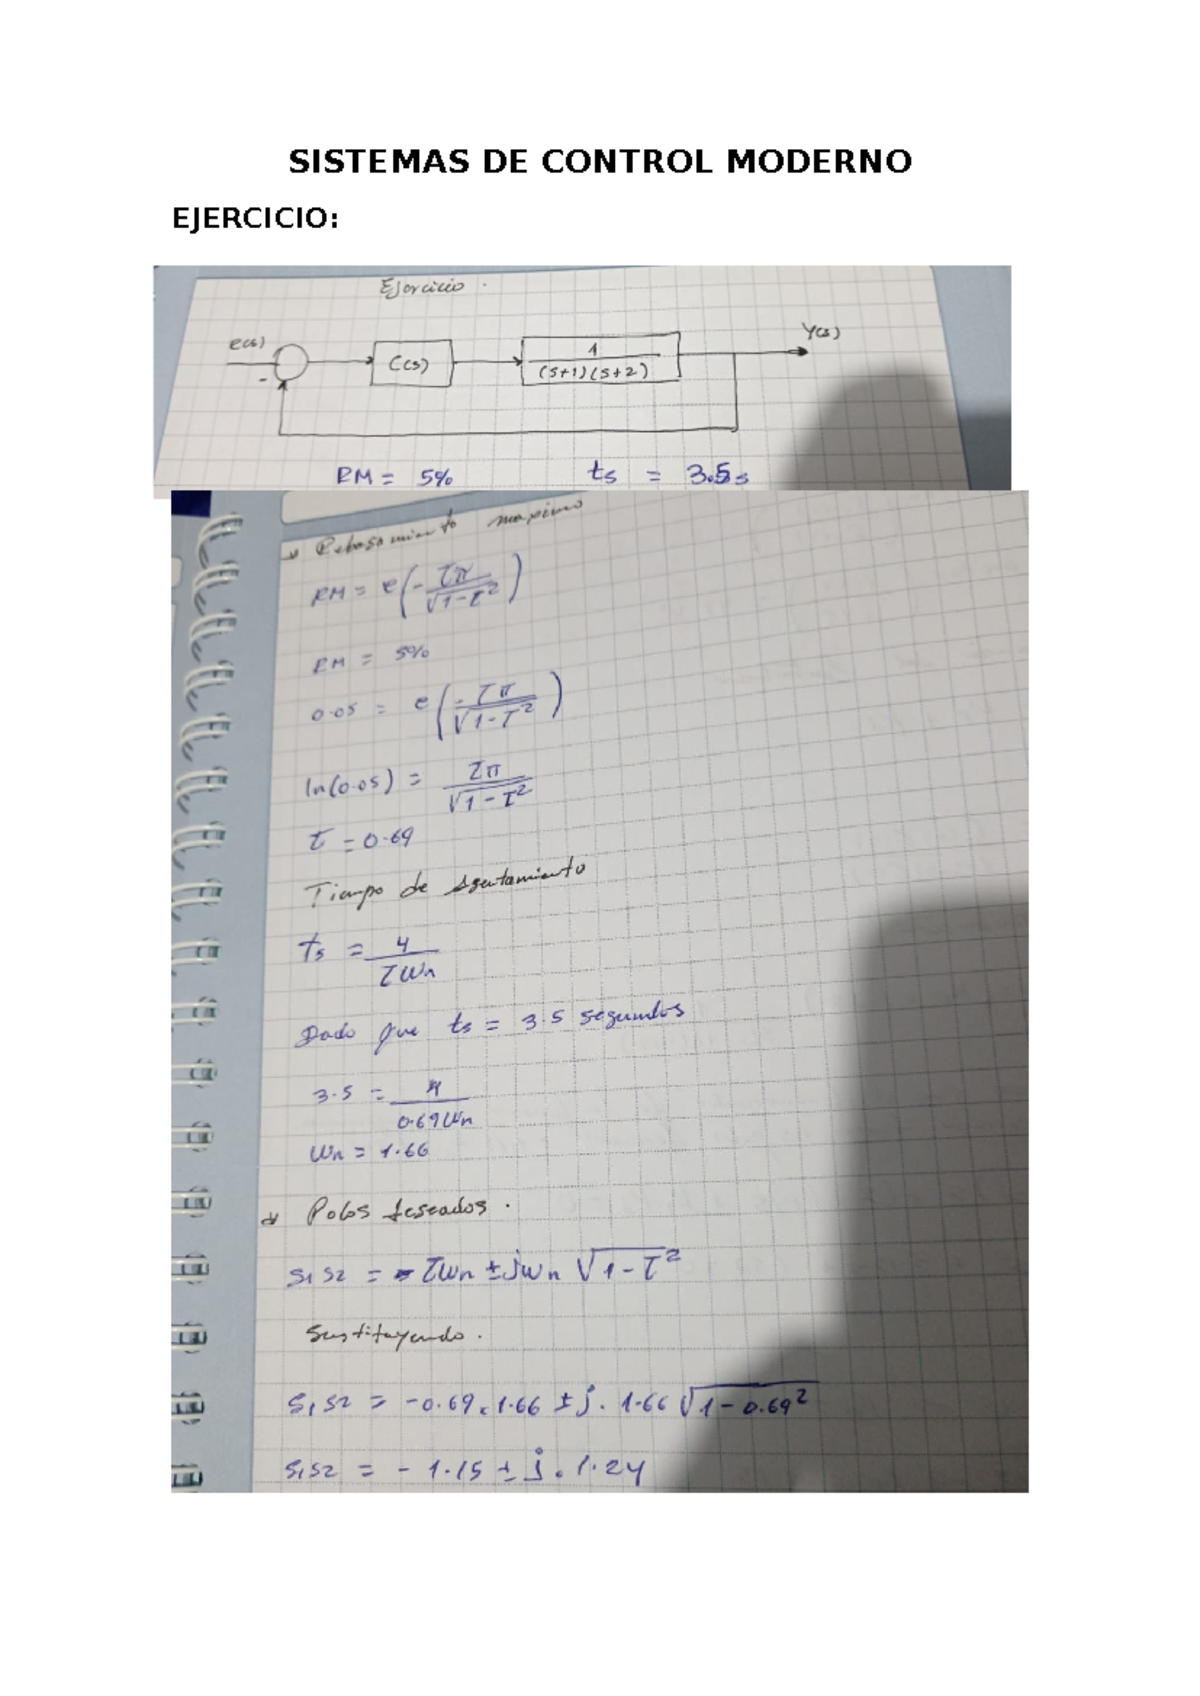 SISTEMAS DE CONTROL MODERNO
EJERCICIO:
Ejercicio.
e(s)
-
C(s)
1
(s+1)(s+2)
Y(s)
RM = 5% ts = 3.5s
→ Rebosamiento maximo
RM = e(- ζπ / √1-ζ²)
RM = 5%
0.05 = e(- ζπ / √1-ζ²)
ln(0.05) = ζπ / √1-ζ²
ζ = 0.69
Tiempo de Asentamiento
ts = 4 / ζωn
Dado que ts = 3.5 segundos
3.5 = 4 / 0.69ωn
ωn = 1.66
→ Polos deseados.
s1 s2 = - ζωn ± jωn √1-ζ²
Sustituyendo.
s1 s2 = -0.69 . 1.66 ± j . 1.66 √1-0.69²
s1 s2 = - 1.15 ± j . 1.24